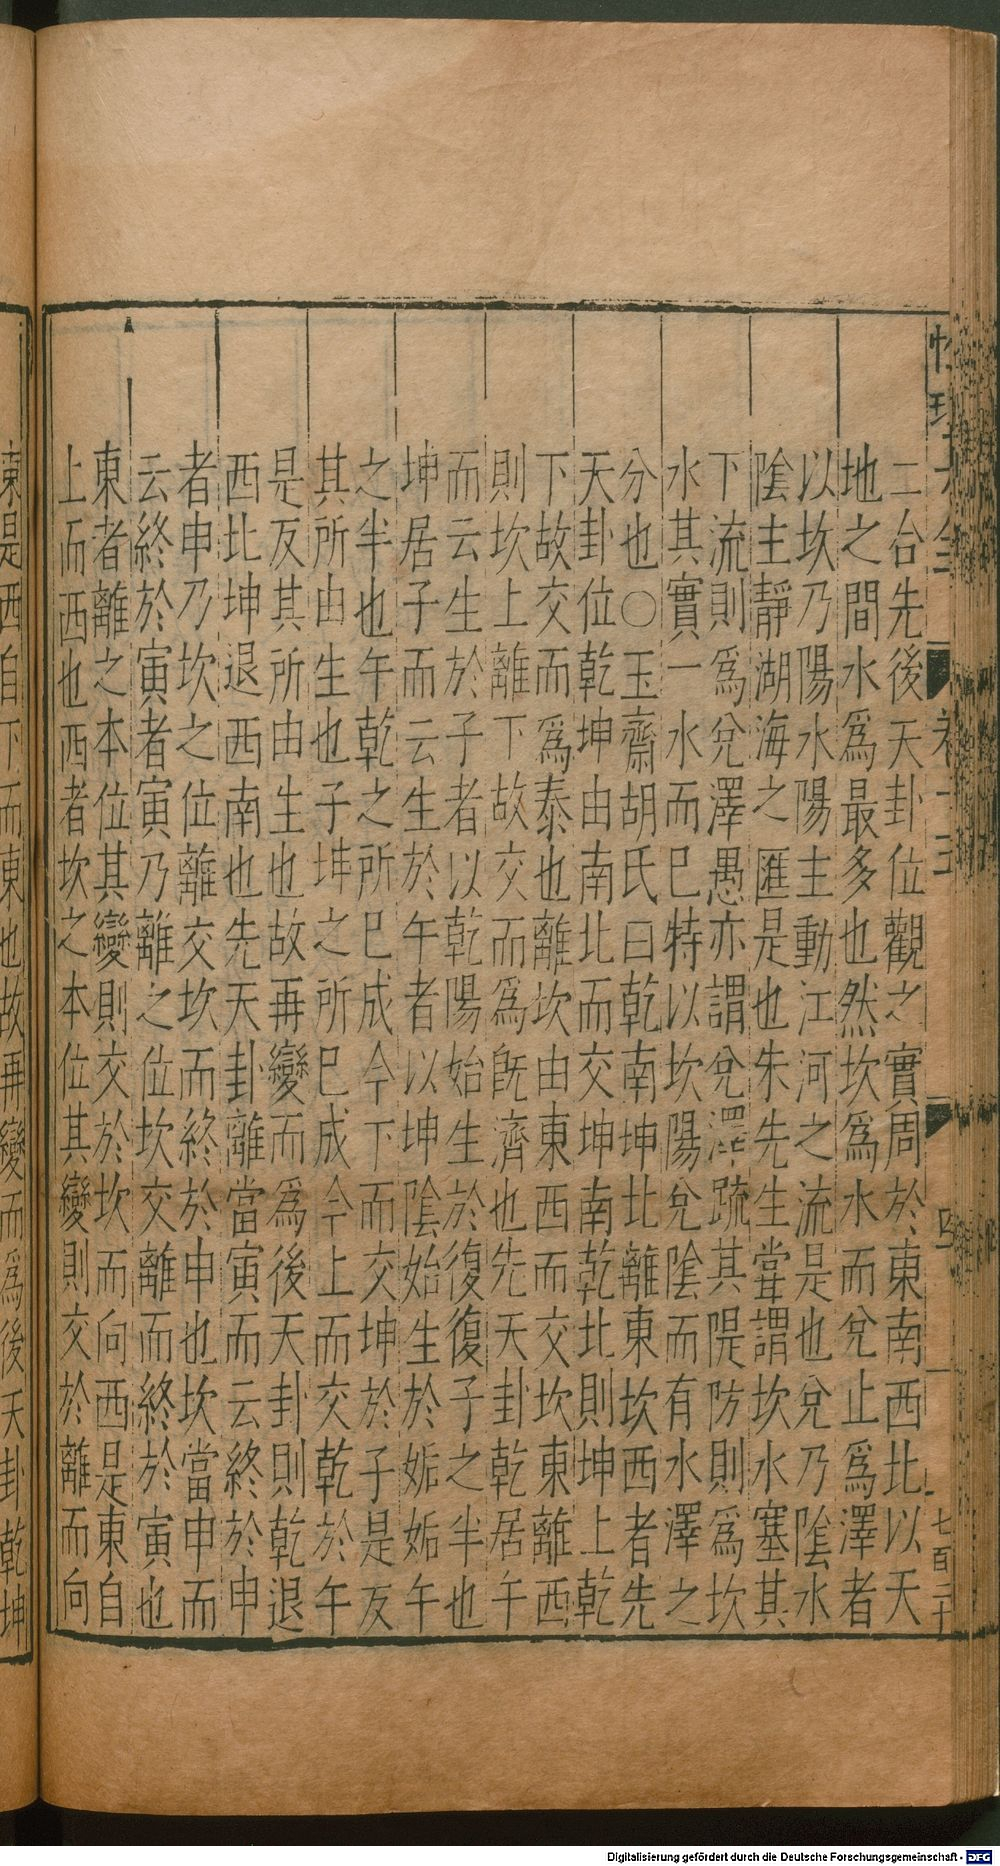 二合先後天卦位觀之實周於東南西北以天
地之間水爲最多也然坎爲水而兌止爲澤者
以坎乃陽水陽主動江河之流是也兌乃陰水
陰主靜湖海之匯是也朱先生嘗謂坎水塞其
下流則爲兌澤愚亦謂兌澤疏其隄防則爲坎
水其實一水而巳特以坎陽兌陰而有水澤之
分也〇玉齋胡氏曰乾南坤北離東坎西者先
天卦位乾坤由南北而交坤南乾北則坤上乾
下故交而爲泰也離坎由東西而交坎東離西
則坎上離下故交而爲旣濟也先天卦乾居午
而云生於子者以乾陽始生於復復子之半也
坤居子而云生於午者以坤陰始生於姤姤午
之半也午乾之所巳成今下而交坤於子是反
其所由生也子坤之所巳成今上而交乾於午
是反其所由生也故再變而爲後天卦則乾退
西北坤退西南也先天卦離當寅而云終於申
者申乃坎之位離交坎而終於申也坎當申而
云終於寅者寅乃離之位坎交離而終於寅也
東者離之本位其變則交於坎而向西是東自
上而西也西者坎之本位其變則交於離而向
東是西自下而東也故再變而爲後天卦乾坤
七百二十
Digitalisierung gefördert durch die Deutsche Forschungsgemeinschaft - DFG